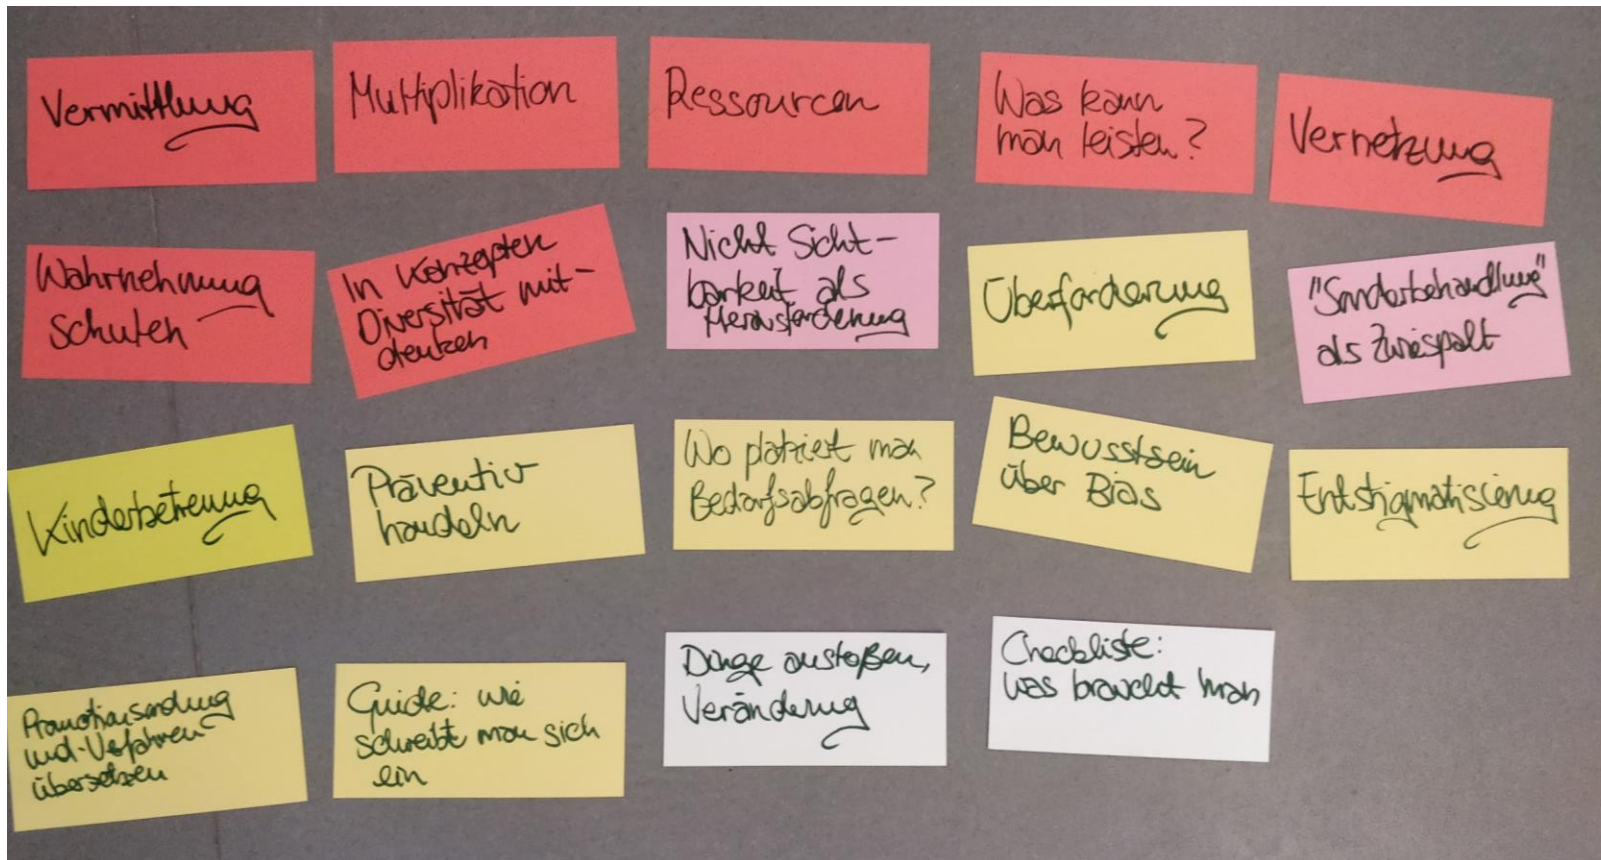 Vermittlung
Multiplikation
Ressourcen
Was kann
man leisten?
Vernetzung
Wahrnehmung
Schulen
In Konzepten
Diversität mit-
denken
Nicht Sicht-
barkeit als
Herausforderung
Überforderung
"Sonderbehandlung"
als Zwiespalt
Kinderbetreuung
Präventiv
handeln
Wo platziert man
Bedarfsabfragen?
Bewusstsein
über Bias
Entstigmatisierung
Promotionsordnung
und -Verfahren
übersetzen
Guide: wie
schreibt man sich
ein
Dinge anstoßen,
Veränderung
Checkliste:
was braucht man